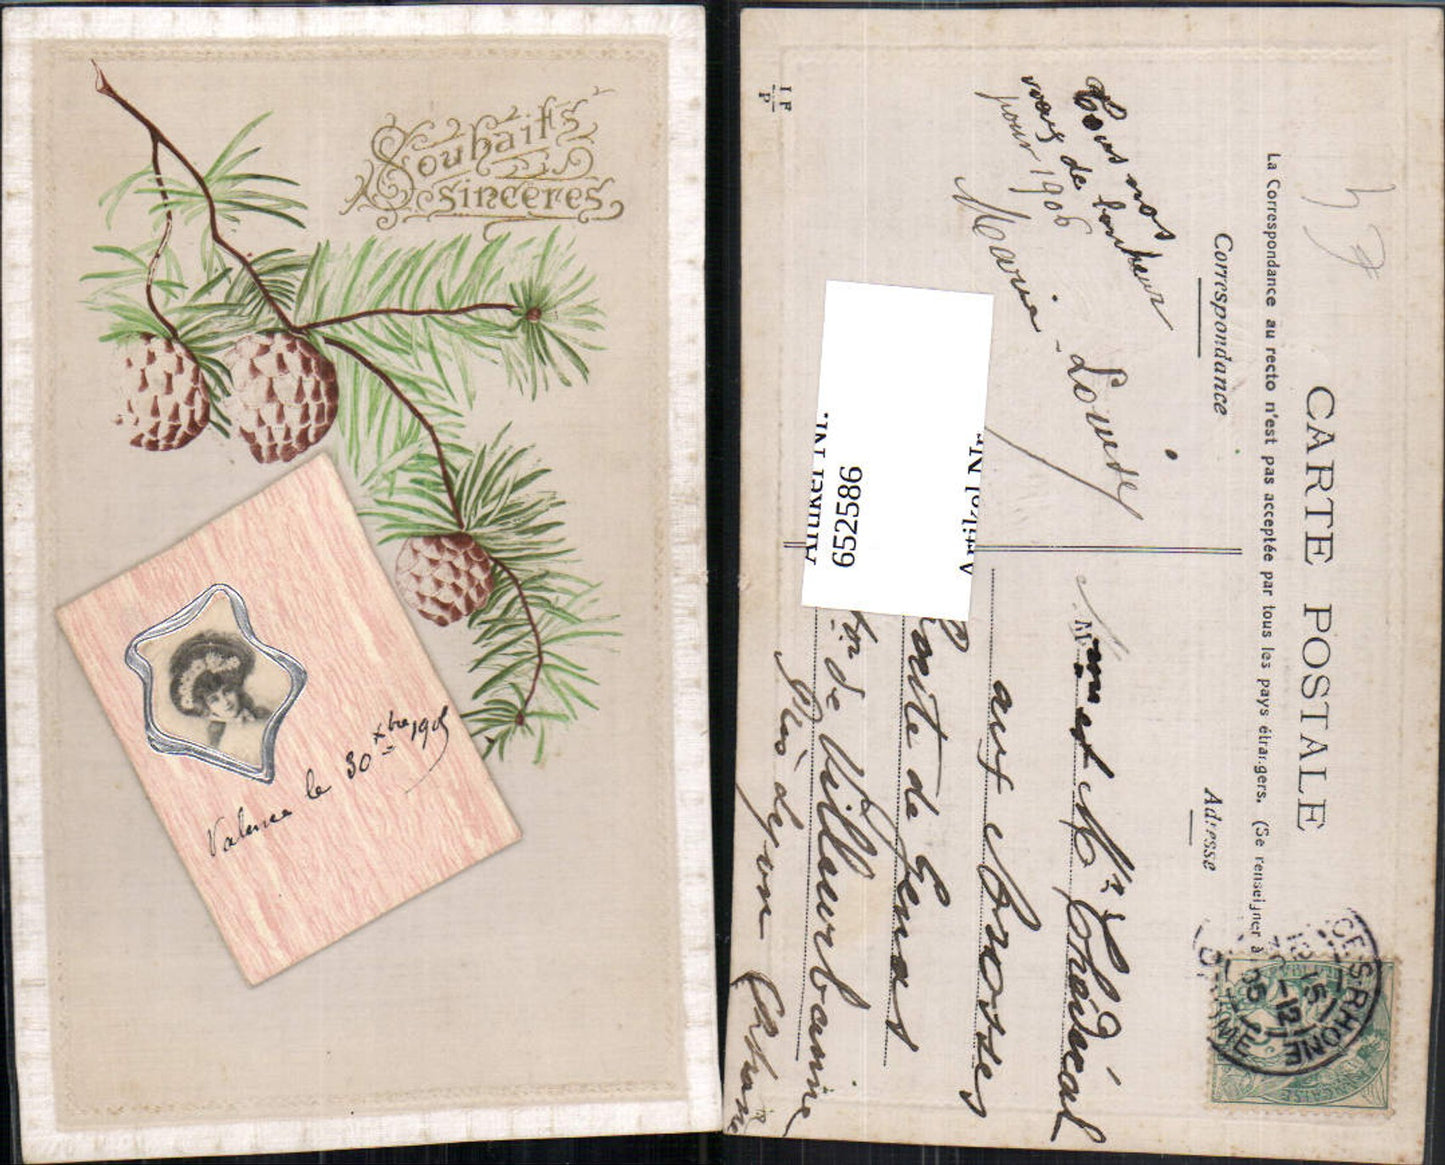 Souhaits
sincères
Valence le 30 xbre 1905
CARTE POSTALE
La Correspondance au recto n'est pas acceptée par tous les pays étrangers. (Se renseigner à
Correspondance
Adresse
Tous nos
vœux de bonheur
pour 1906
Marie-Louise
M
Mme et Mr Thédécal
aux Brosses
route de Genas
de Villeurbanne
Près Lyon (Rhône
I F
P
Artikel Nr.
652586
Artikel Nr.
CE-S-RHONE
DROME